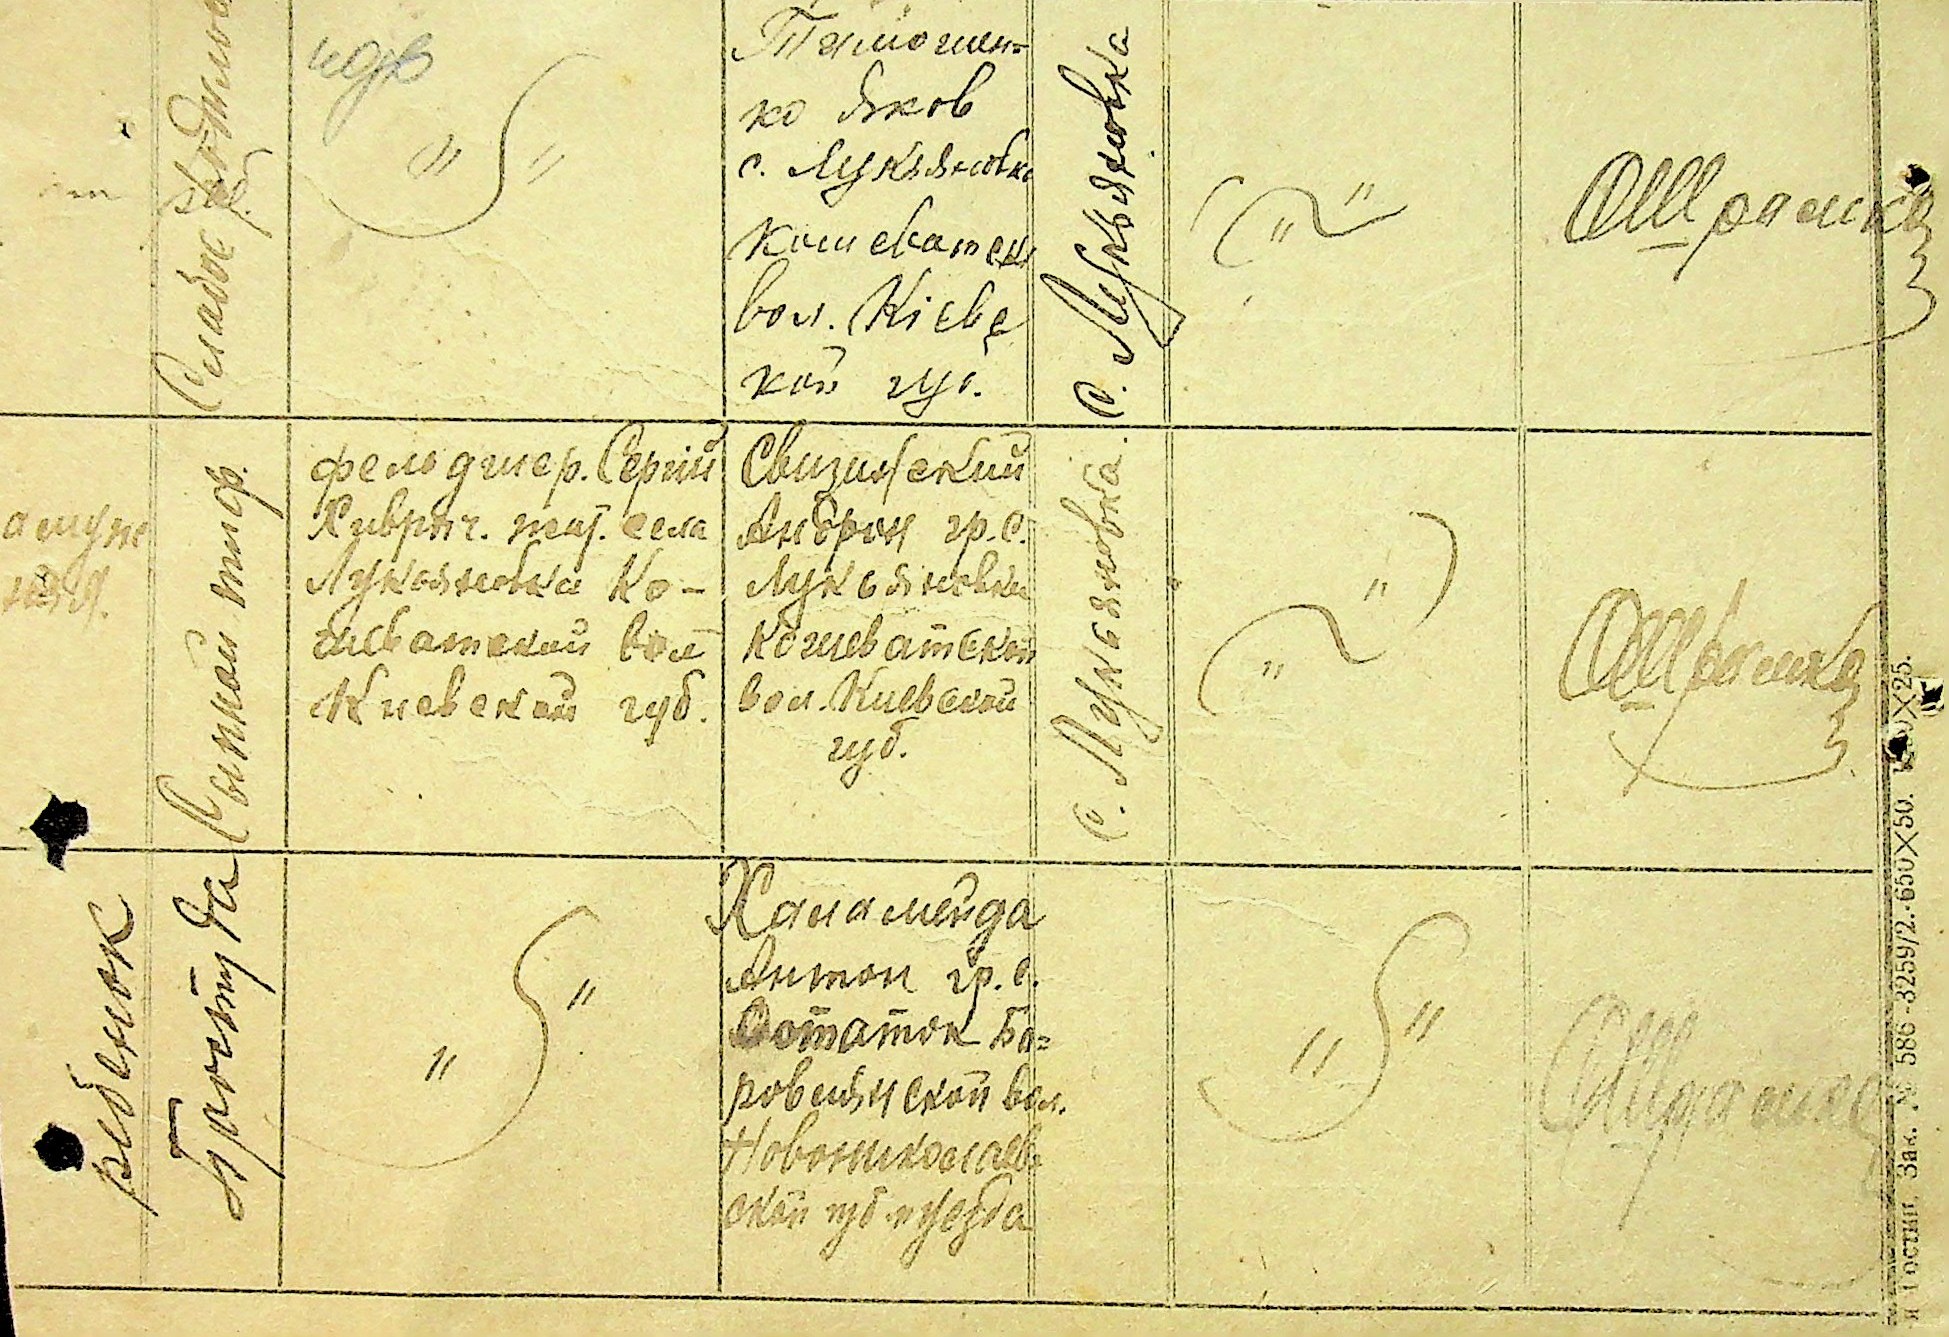 Слабое
род.
Тимошен=
ко Яков
с. Лукьяновки
Кошеватск
вол. Кіевс
кой губ.
с. Лукьяновка
" "
" "
ОШрамко
Сыпной тиф.
фельдшер. Сергий
Хиврич. жит. села
Лукьяновки Ко-
шеватской вол
Киевской губ.
Свизинский
Андрон гр. с.
Лукьяновки
Кошеватской
вол. Киевской
губ.
с. Лукьяновка.
" "
ОШрамко
ребенок
" "
Халамейда
Антон гр. с.
Остаток Бо=
ровлянской вол.
Новониколаев
ской губ и уезда
" "
ОШрамко
Гостип. Зак. № 586-3259/2.-650×50. 1250×25.